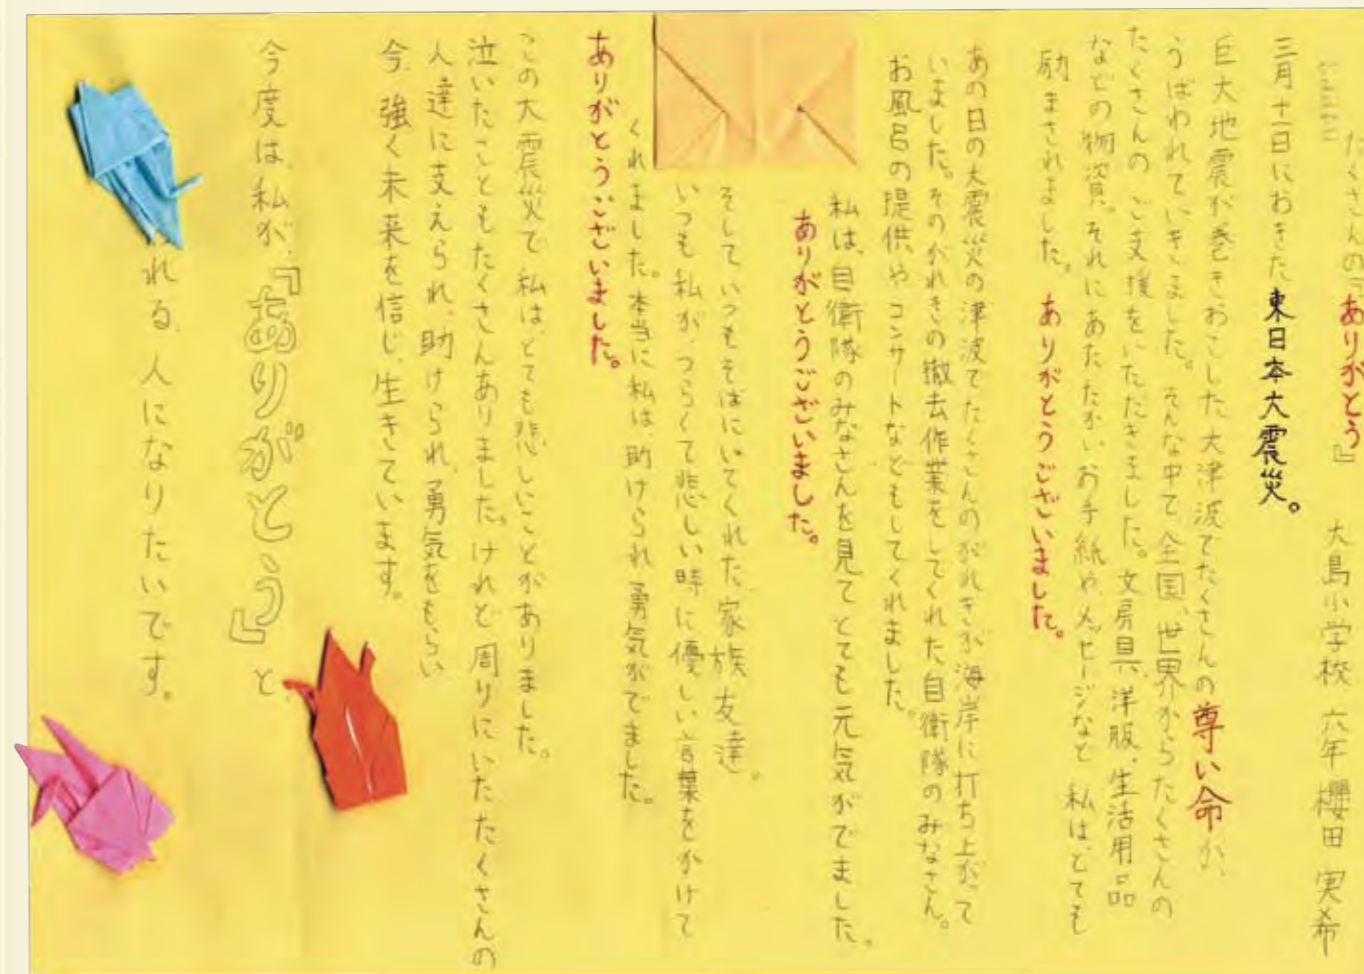 たくさんの『ありがとう』　大島小学校　六年　櫻田　実希
三月十一日におきた東日本大震災。
巨大地震が巻きおこした大津波でたくさんの尊い命が、
うばわれていきました。そんな中で全国、世界からたくさんの
たくさんの ご支援をいただきました。文房具、洋服、生活用品
などの物資。それにあたたかいお手紙やメッセージなど 私は、とても
励まされました。　ありがとうございました。
あの日の大震災の津波でたくさんのがれきが海岸に打ち上がって
いました。そのがれきの撤去作業をしてくれた自衛隊のみなさん。
お風呂の提供、やコンサートなどもしてくれました。
私は、自衛隊のみなさんを見てとても元気がでました。
ありがとうございました。
そして、いつもそばにいてくれた、家族、友達。
いつも私が、つらくて悲しい時に優しい言葉をかけて
くれました。本当に私は、助けられ勇気がでました。
ありがとうございました。
この大震災で 私は、とても悲しいことがありました。
泣いたこともたくさんありました。けれど 周りにいたたくさんの
人達に支えられ、助けられ、勇気をもらい
今、強く未来を信じ、生きています。
今度は、私が、『ありがとう』と
れる、人になりたいです。